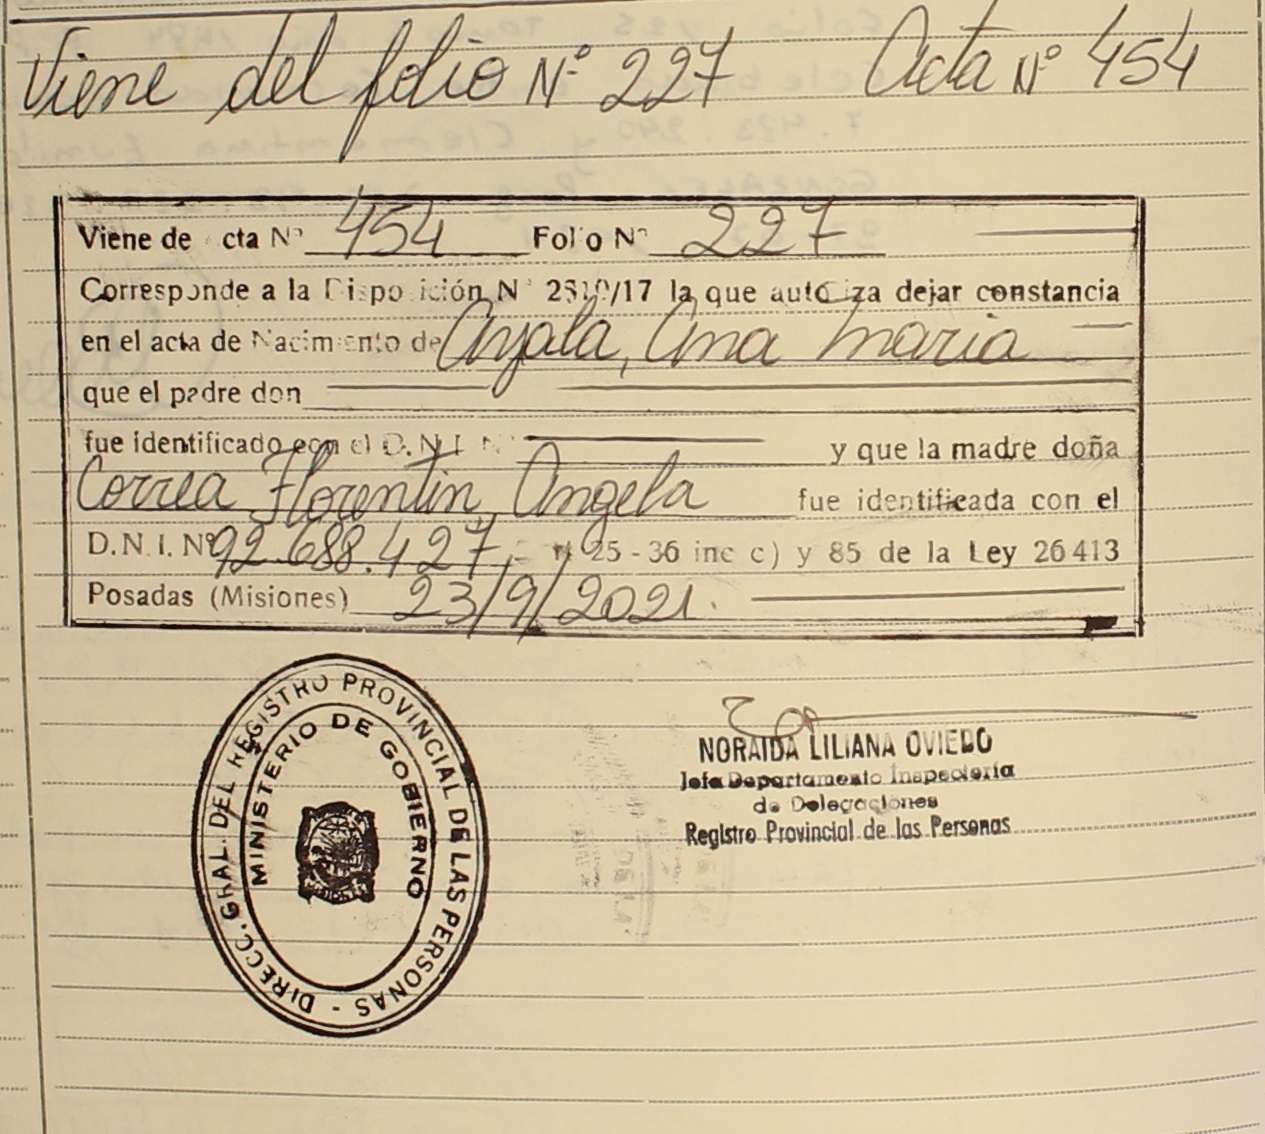 Viene del folio Nº 227 Acta Nº 454
Viene de cta Nº 454 Folio Nº 227
Corresponde a la Disposición Nº 2510/17 la que autoriza dejar constancia
en el acta de Nacimiento de Ayala, Ana Maria
que el padre don
fue identificado con el D.N.I. Nº y que la madre doña
Correa Florentin, Angela fue identificada con el
D.N.I. Nº 92.688.427, 25-36 inc c) y 85 de la Ley 26413
Posadas (Misiones) 23/9/2021.
DIRECC. GRAL. DEL REGISTRO PROVINCIAL DE LAS PERSONAS -
MINISTERIO DE GOBIERNO
NORAIDA LILIANA OVIEDO
Jefa Departamento Inspectoría
de Delegaciones
Registro Provincial de las Personas